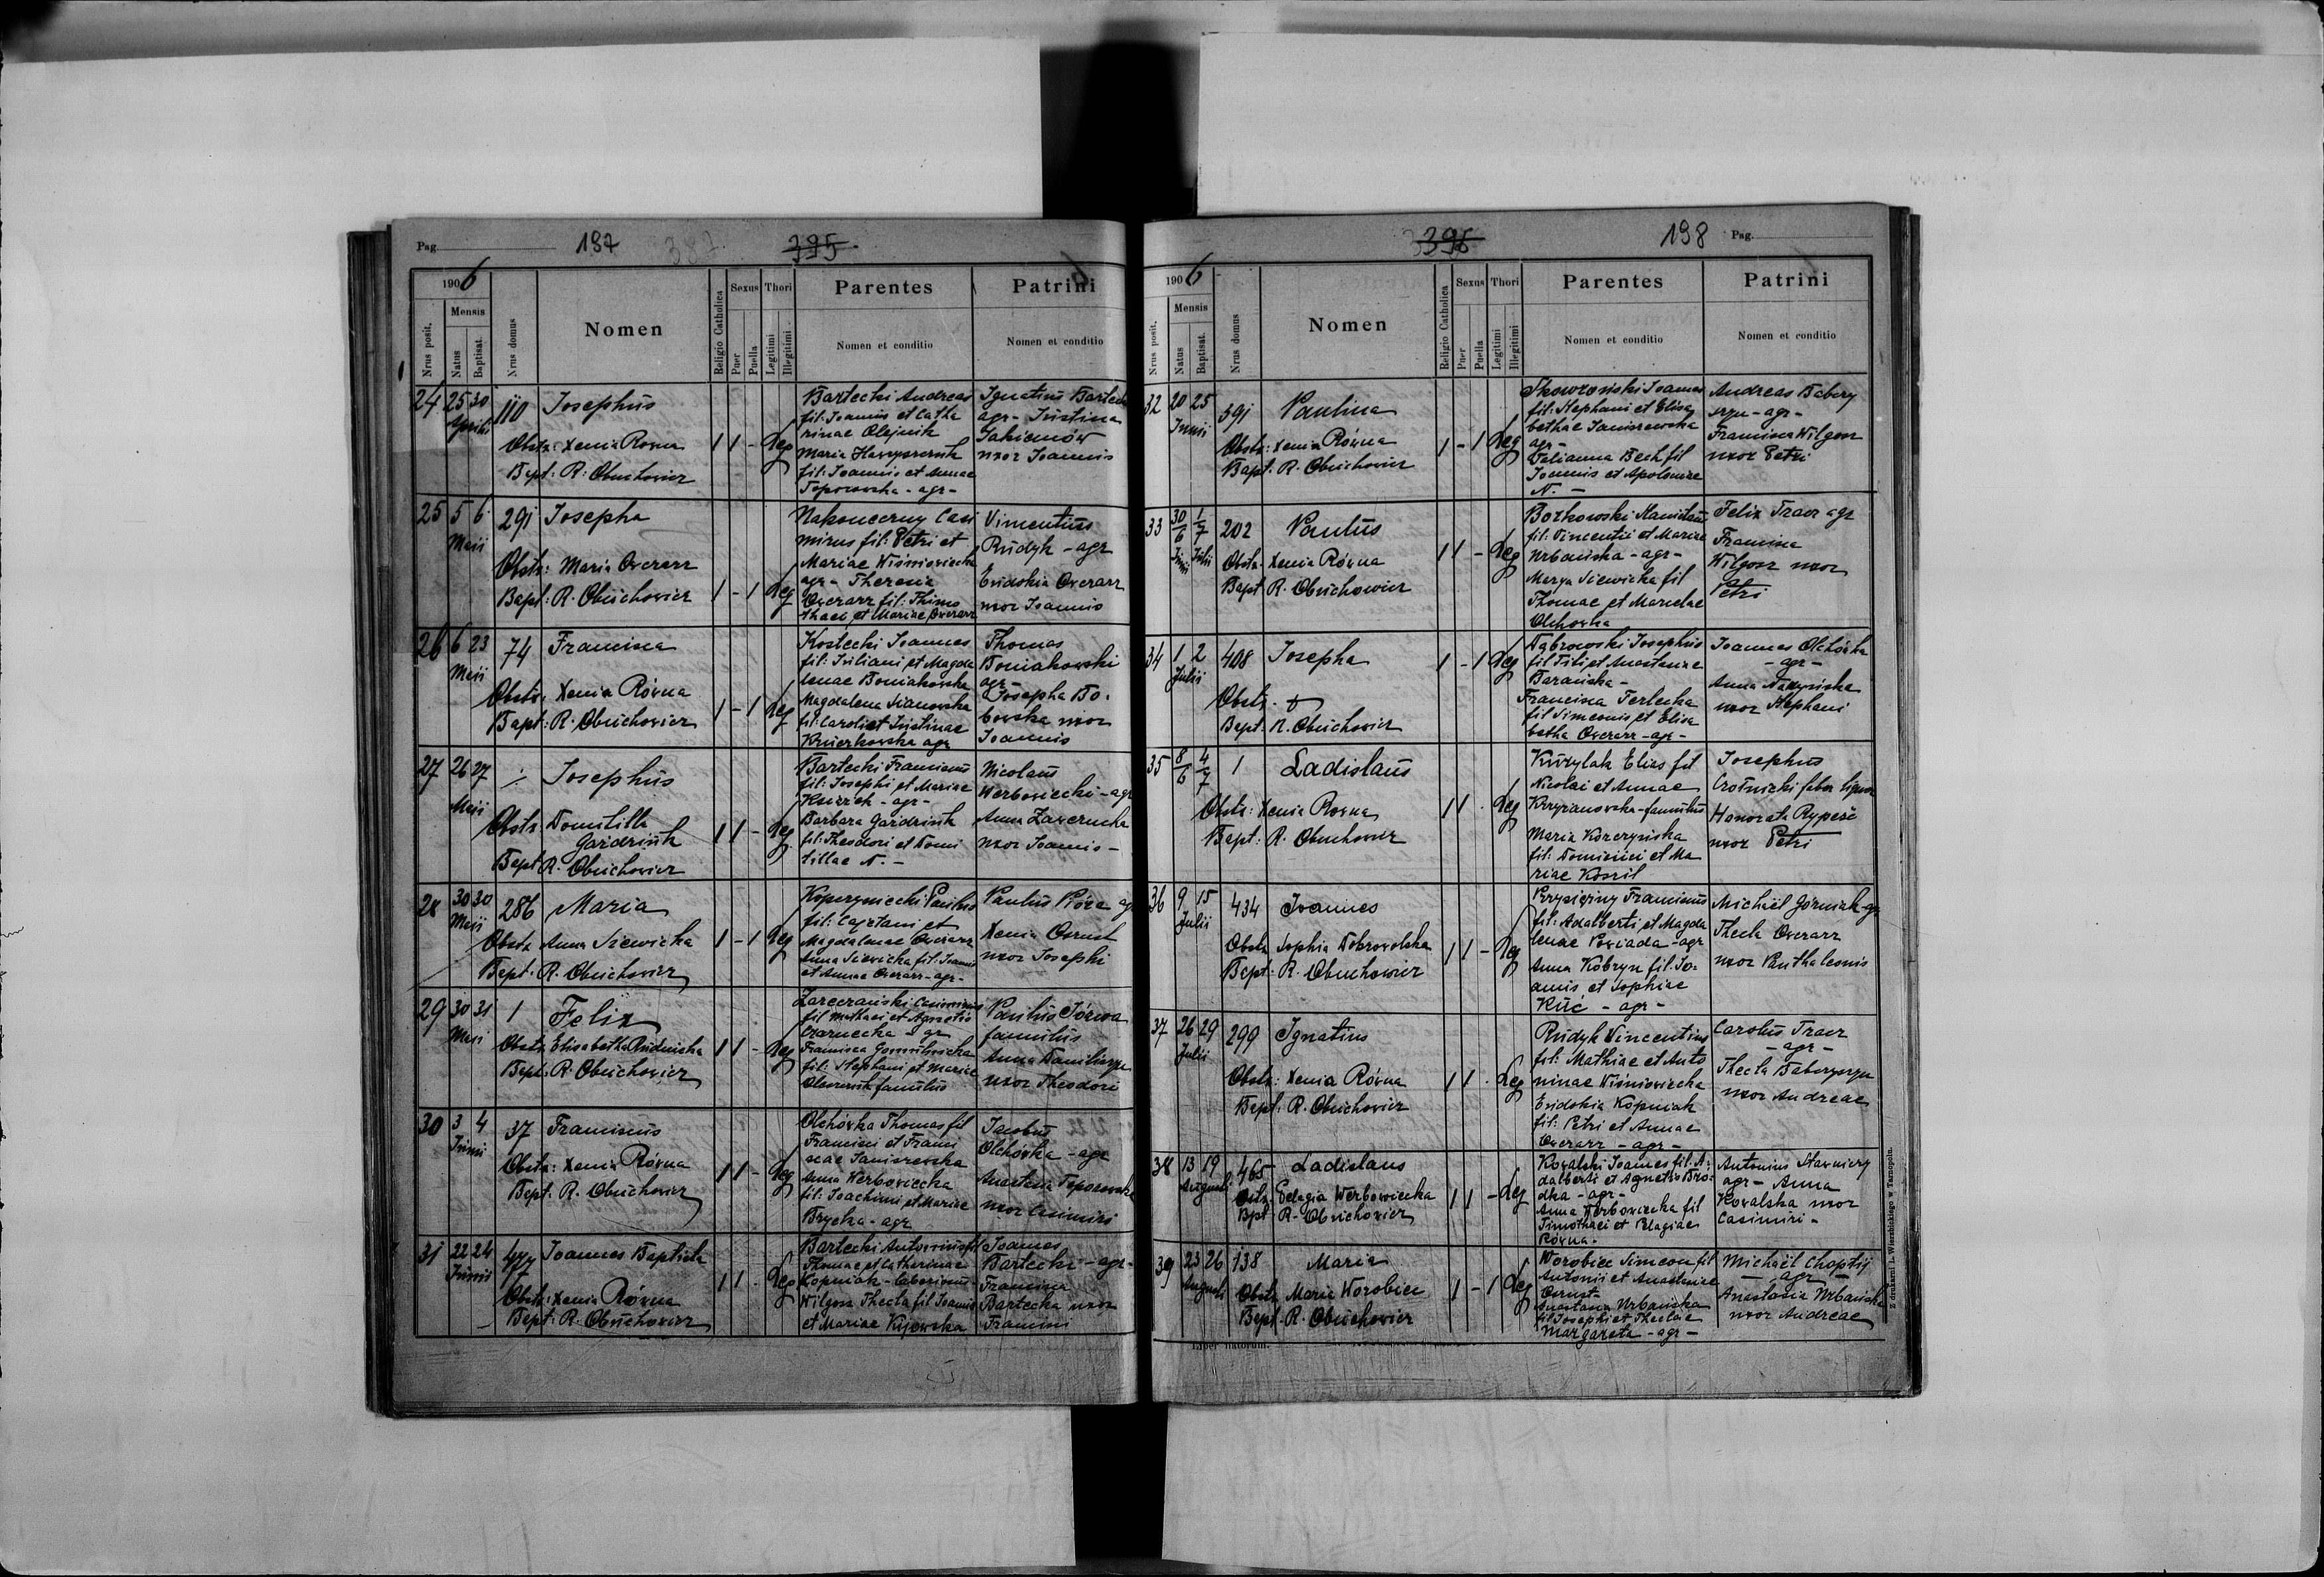 Pag. 197 387 395
1906
Nrus posit.
Mensis
Natus
Baptisat.
Nrus domus
Nomen
Religio Catholica
Sexus
Puer
Puella
Thori
Legitimi
Illegitimi
Parentes
Nomen et conditio
Patrini
Nomen et conditio
24 25 30 110 Josephus
Aprilis
Obstr: Xenia Rowna 1 1 - Leg
Bapt: R. Obuchowicz
Bartecki Andreas
fil: Joannis et Catha
rinae Olejnik
Maria Hawryszczuk
fil: Joannis et Annae
Toporowska - agr -
Ignatius Bartecki
agr - Justina
Jakimów
uxor Joannis
25 5 6 291 Josepha
Maii
Obstr: Maria Owerarz
Bapt: R. Obuchowicz 1 - 1 Leg
Nakoneczny Casi
mirus fil: Petri et
Mariae Wiśniowiecka
agr - Theresia
Owerarz fil: Thimo
thaei et Mariae Owerarz
Vincentius
Rudyk - agr
Eudokia Owerarz
uxor Joannis
26 6 23 74 Francisca
Maii
Obstr: Xenia Równa
Bapt: R. Obuchowicz 1 - 1 Leg
Kostecki Joannes
fil: Juliani et Magda
lenae Boniakowska
Magdalena Sianowska
fil: Caroli et Justinae
Kruczkowska agr
Thomas
Boniakowski
agr -
Josepha Bo.
bowska uxor
Joannis
27 26 27 ∴ Josephus
Maii
Obstr: Domitilla
Gazdziuk 1 1 - Leg
Bapt R. Obuchowicz
Bartecki Franciscus
fil: Josephi et Mariae
agr -
Barbara Gazdziuk
fil: Theodori et Domi
tillae N. -
Nicolaus
Werbowiecki - agr
Anna Zawerucha
uxor Joannis -
28 30 30 286 Maria
Maii
Obstr Anna Siewicka 1 - 1 Leg
Bapt. R. Obuchowicz
Koperzyniecki Paulus
fil: Cajetani et
Magdalenae Owerarz
Anna Siewicka fil: Joannis
et Annae Owerarz - agr -
Paulus Róża agr
Xenia Ozrust
uxor Josephi
29 30 31 1 Felix
Maii
Obstr: Elisabetha Rudnicka 1 1 - Leg
Bapt: R. Obuchowicz
Zarecrański Casimirus
fil Mathaei et Agnetis
Czarnecka - agr
Francisca
fil: Stephani et Mariae
famulus
Paulus Józwa
famulus
Anna Daniliszyn
uxor Theodori
30 3 4 37 Franciscus
Junii
Obstr: Xenia Równa 1 1 - Leg
Bapt: R. Obuchowicz
Olchówka Thomas fil
Francisci et Franci
scae Janiszewska
Anna Werbowiecka
fil: Joachimi et Mariae
Brycka - agr
Jacobus
Olchówka - agr
Anastasia Toporowska
uxor Casimiri
31 22 24 477 Joannes Baptista
Junii
Obstr: Xenia Równa 1 1 . Leg
Bapt: R. Obuchowicz
Bartecki Antonius fil
Thomae et Catherinae
Kopniak - laboriosus -
Wilgosz Thecla fil Joannis
et Mariae Kijowska
Joannes
Bartecki - agr -
Francisca
Bartecka uxor
Francisci
396 198 Pag.
1906
Nrus posit.
Mensis
Natus
Baptisat.
Nrus domus
Nomen
Religio Catholica
Sexus
Puer
Puella
Thori
Legitimi
Illegitimi
Parentes
Nomen et conditio
Patrini
Nomen et conditio
32 20 25 591 Paulina
Junii
Obstr: Xenia Równa 1 - 1 Leg
Bapt: R. Obuchowicz
Skowroński Joannes
fil: Stephani et Elisa
bethae Janiszewska
agr -
Felianna Bech fil
Joannis et Apoloniae
N. -
Andreas Babery
szyn - agr -
Francisca Wilgosz
uxor Petri
33 30/6 1/7 202 Paulus
Junii Julii
Obstr. Xenia Równa 1 1 - Leg
Bapt R. Obuchowicz
Borkowski Stanislaus
fil: Vincentii et Mariae
Urbańska - agr -
Marya Siewicka fil
Thomae et Marielae
Olchowka
Felix Tracz agr
Francisca
Wilgosz uxor
Petri
34 1 2 408 Josepha 1 - 1 Leg
Julii
Obstr.
Bapt. R. Obuchowicz
Dąbrowski Josephus
fil Titi et Anastasiae
Barańska -
Francisca Terlecka
fil Simeonis et Elisa
betha Owerarz - agr -
Joannes Olchówka
- agr -
Anna Nadzyńska
uxor Stephani
35 8/6 4/7 1 Ladislaus
Obstr: Xenia Rowna 1 1 . Leg
Bapt: R. Obuchowicz
Kuzylak Elias fil
Nicolai et Annae
Krzyzanowska - famulus
Maria Korczyńska
fil: Dominici et Ma
riae Kosził
Josephus
Crotnicki faber lignar
Honorata Rypeść
uxor Petri
36 9 15 434 Joannes
Julii
Obstr Sophia Dobrowolska 1 1 - Leg
Bapt: R. Obuchowicz
Przysiężny Franciscus
fil: Adalberti et Magda
lenae Powiada - agr
Anna Kobryn fil: Jo:
annis et Sophiae
Kuć - agr -
Michaël Górniak - agr
Thecla Owerarz
uxor Panthaleonis
37 26 29 299 Ignatius
Julii
Obstr: Xenia Równa 1 1 . Leg
Bapt: R. Obuchowicz
Rudyk Vincentius
fil: Mathiae et Anto
ninae Wiśniowiecka
Eudokia Kopniak
fil: Petri et Annae
Owerarz - agr -
Carolus Tracz
- agr -
Thecla Baberyszyn
uxor Andreae
38 13 19 465 Ladislaus
Augusti
Obstr. Pelagia Werbowiecka 1 1 - Leg
Bpt R. Obuchowicz
Kowalski Joannes fil: A:
dalberti et Agnetis Bro:
dka - agr -
Anna Werbowiecka fil
Timothaei et Pelagiae
Równa.
Antonius Stawniczy
agr - Anna
Kowalska uxor
Casimiri -
39 23 26 138 Maria
Augusti
Obstr Maria Worobiec 1 - 1 Leg
Bapt. R. Obuchowicz
Worobiec Simeon fil
Antonii et Anastasiae
Ozrust
Anastasia Urbańska
fil Josephi et Theclae
Margareta - agr -
Michaël Choptij
- agr -
Anastasia Urbańska
uxor Andreae
Liber natorum.
Z drukarni L. Wierzbickiego w Tarnopolu.